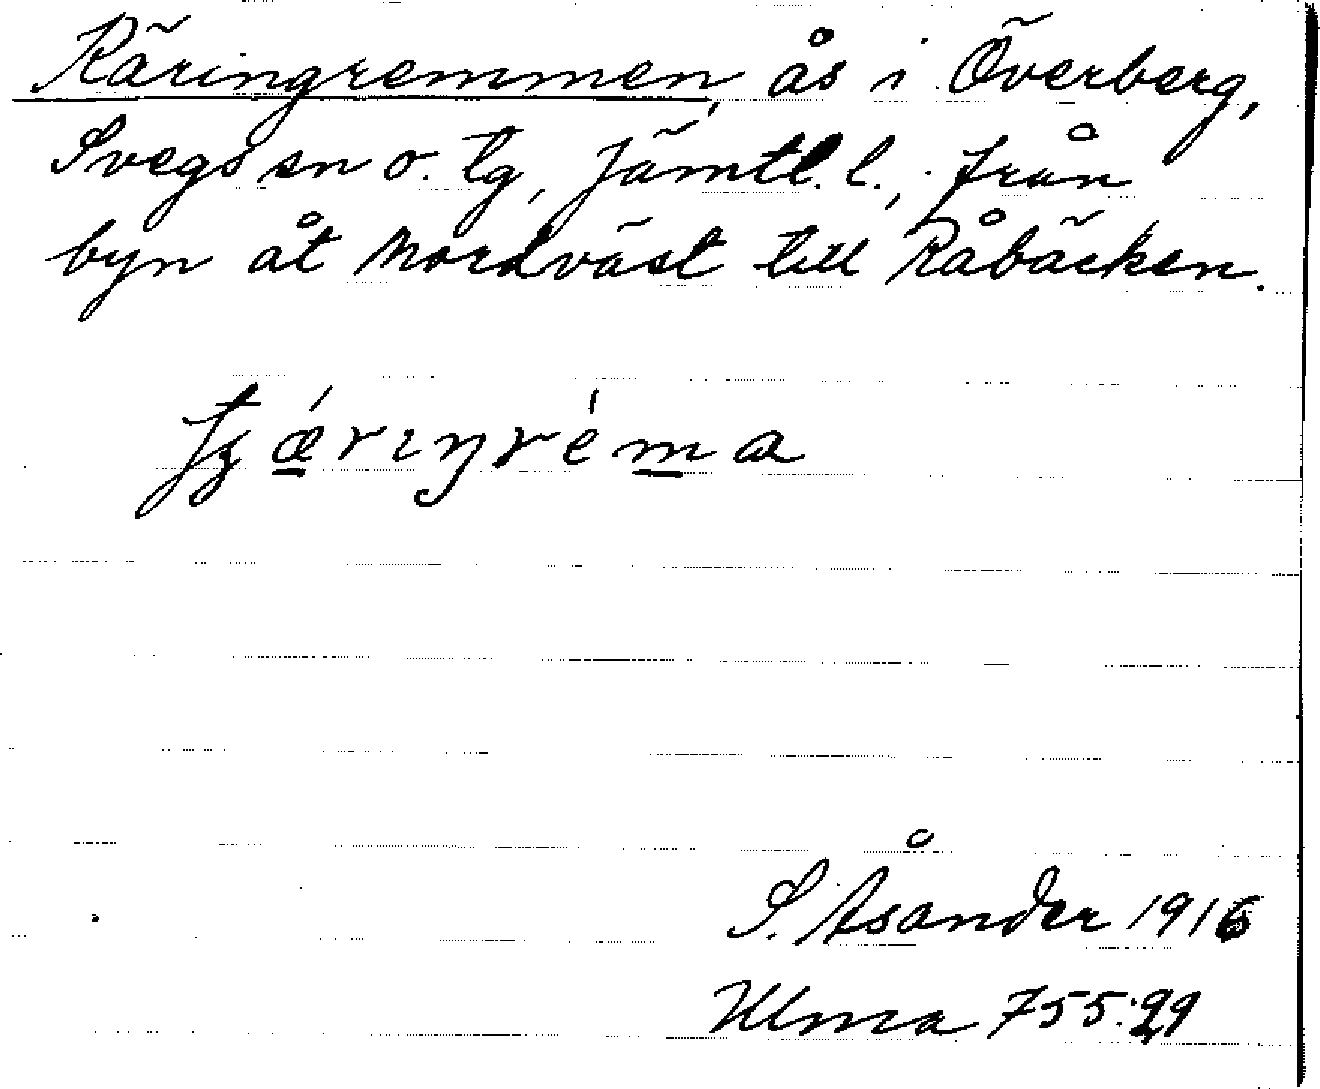 Käringremmen, ås i Överberg,
Svegs sn o. tg, Jämtl. l., från
byn åt Nordväst till Råbäcken.
S. Åsander 1916
Ulma 755:29